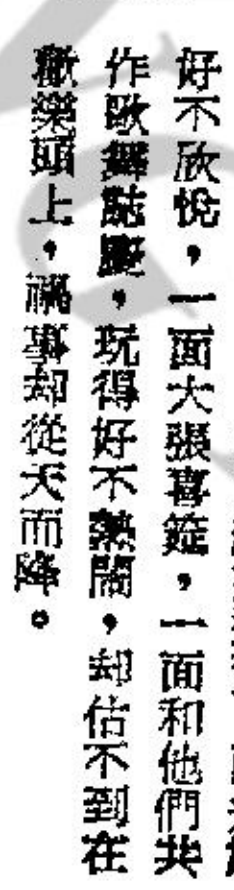 好不欣悅，一面大張喜筵，一面和他們共
作歌舞誌慶，玩得好不熱鬧，却估不到在
歡樂頭上，禍事却從天而降。